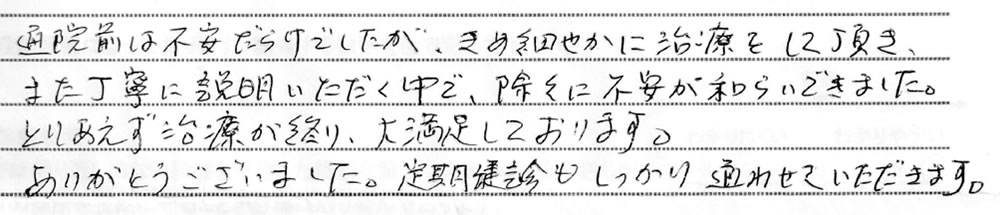 通院前は不安だらけでしたが、きめ細やかに治療をして頂き、
また丁寧に説明いただく中で、除々に不安が和らいできました。
とりあえず治療が終り、大満足しております。
ありがとうございました。定期健診もしっかり通わせていただきます。